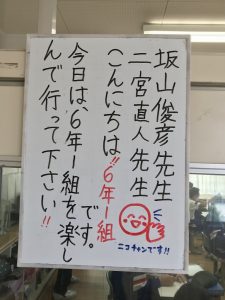 坂山俊彦先生
二宮直人先生
こんにちは!!6年1組
です。
今日は、6年1組を楽し
んで行って下さい!!
ニコチャンです!!